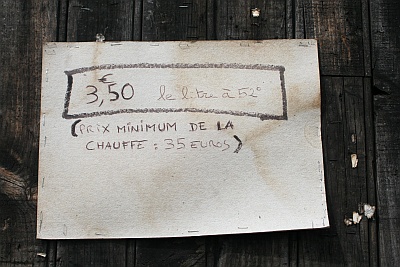 3,50 € le litre à 52°
(PRIX MINIMUM DE LA
CHAUFFE : 35 EUROS)